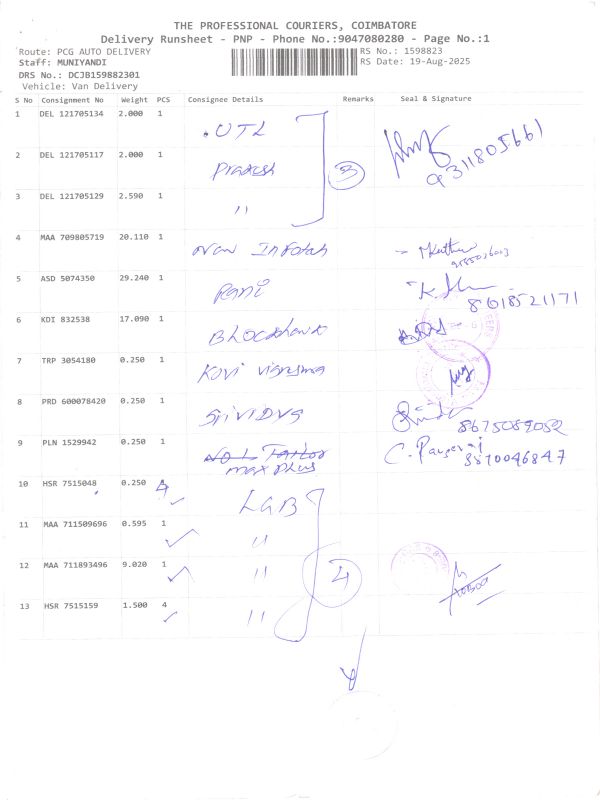 THE PROFESSIONAL COURIERS, COIMBATORE
Delivery Runsheet - PNP - Phone No.:9047080280 - Page No.:1
Route: PCG AUTO DELIVERY RS No.: 1598823
Staff: MUNIYANDI RS Date: 19-Aug-2025
DRS No.: DCJB159882301
Vehicle: Van Delivery
S No Consignment No Weight PCS Consignee Details Remarks Seal & Signature
1 DEL 121705134 2.000 1 UTL
2 DEL 121705117 2.000 1 Pradesh 3 9311805661
3 DEL 121705129 2.590 1 "
4 MAA 709805719 20.110 1 New Infotah
5 ASD 5074350 29.240 1 Rani 8618521171
6 KDI 832538 17.090 1
7 TRP 3054180 0.250 1 Kovi
8 PRD 600078420 0.250 1 Srividya 8675089052
9 PLN 1529942 0.250 1 max plus 8870046847
10 HSR 7515048 0.250 4 LGB
11 MAA 711509696 0.595 1 "
12 MAA 711893496 9.020 1 " 4
13 HSR 7515159 1.500 4 "